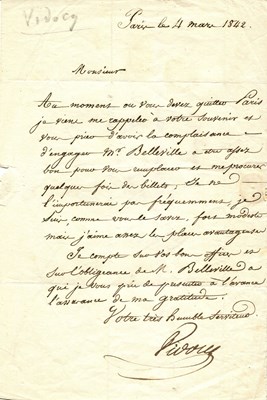 Vidocq
Paris le 4 mars 1842.
Monsieur
Au moment ou vous devez quitter Paris
je viens me rappeler à votre souvenir et
vous prier d'avoir la complaisance
d'engager Mr. Belleville a etre assez
bon pour vous remplacer et me procurer
quelque fois des billets, Je ne
l'importunerai pas fréquemment, je
suis comme vous le savez, fort modeste
mais j'aime assez les places avantageuses
Je compte sur vos bons offices et
sur l'obligeance de M. Belleville a
qui je vous prie de presenter à l'avance
l'assurance de ma gratitude.
Votre très humble Serviteur
Vidocq